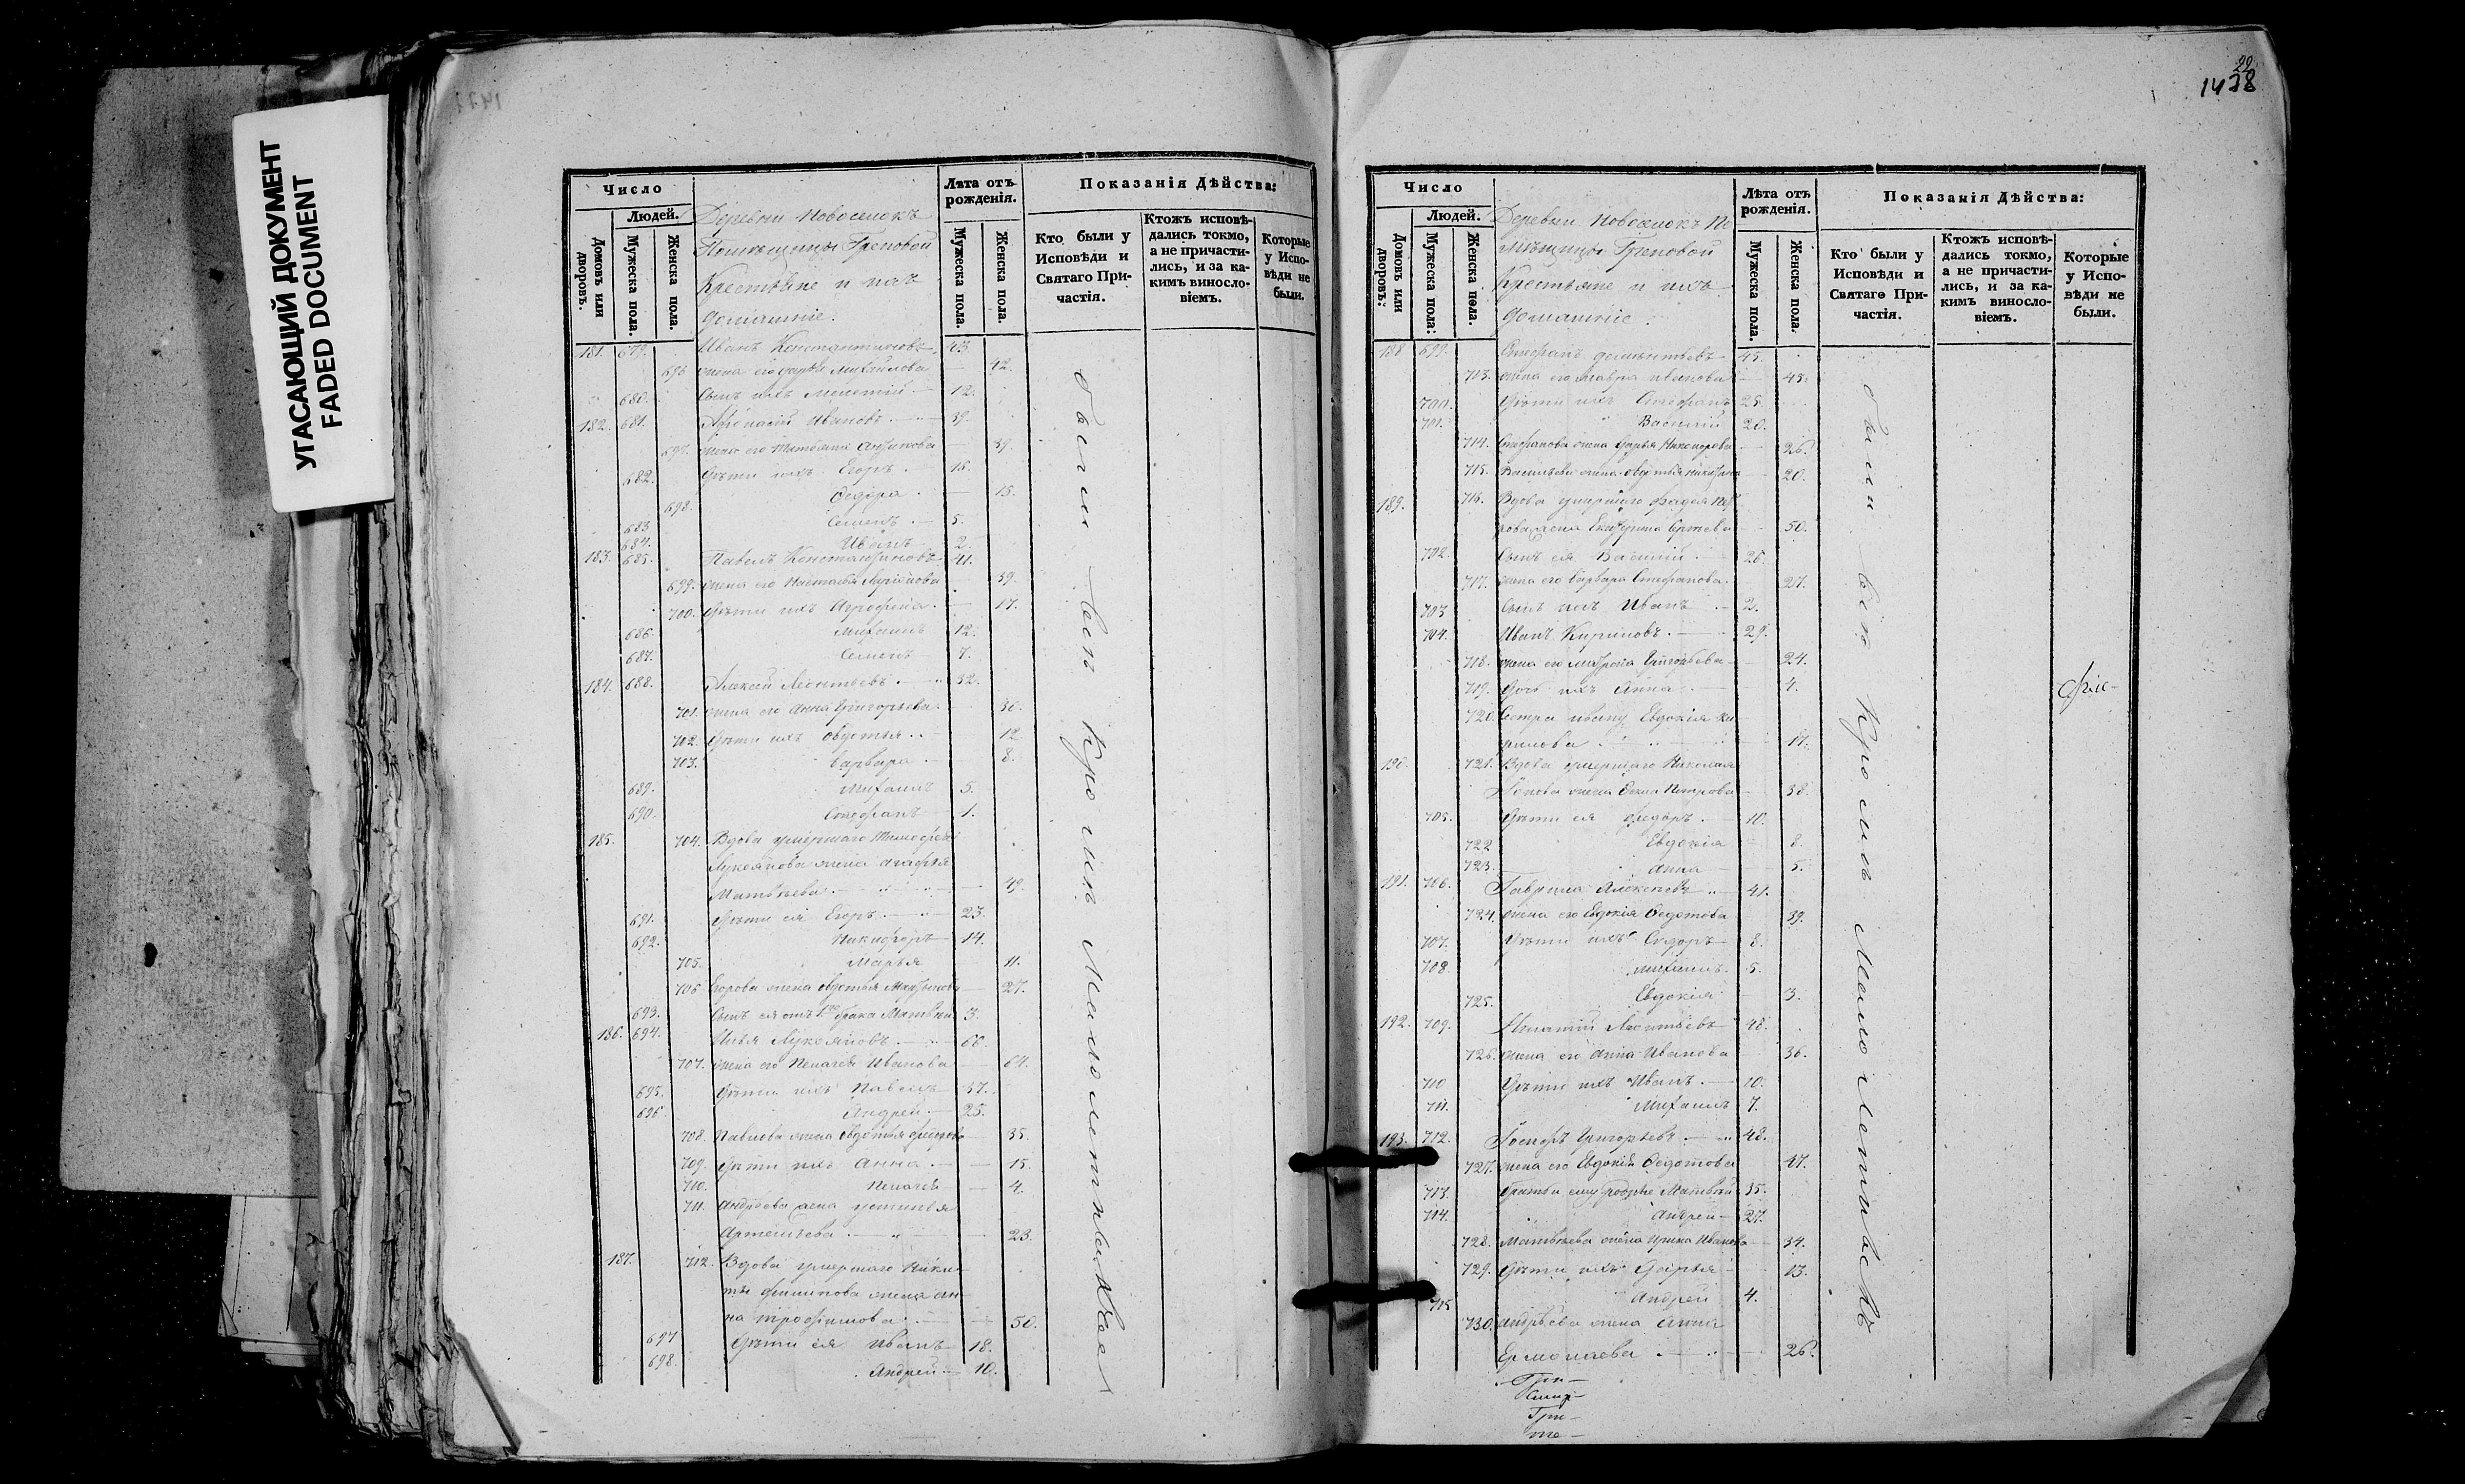 УГАСАЮЩИЙ ДОКУМЕНТ
FADED DOCUMENT
Число
Людей.
Домовъ или дворовъ.
Мужеска пола.
Женска пола.
Деревни Новоселокъ
Помѣщицы
Крестьяне и ихъ
домашніе.
Лѣта отъ рожденія.
Мужеска пола.
Женска пола.
Показанія Дѣйства:
Кто были у Исповѣди и Святаго Причастія.
Ктожъ исповѣдались токмо, а не причастились, и за какимъ винословіемъ.
Которые у Исповѣди не были.
181. 679. Иванъ Константиновъ 43
696 жена его Дарья Михайлова 42.
680. Сынъ ихъ 12.
182. 681. Иванов 39.
697. жена его Татьяна 39.
682. Дѣти ихъ Егоръ 16.
698. Ѳедора 15.
683 Семенъ 5.
684. Иванъ 2.
183. 685. Павелъ Константиновъ 41.
699. жена его Настасья 39.
700. Дѣти ихъ 17.
686. Михаилъ 12.
687. Семенъ 7.
184. 688. Алексѣй Леонтьевъ 32.
701. жена его Анна Григорьева 30.
702. Дѣти ихъ Овдотья 12
703. Варвара 8.
689. Михаилъ 5.
690. Стефанъ 1.
185. 704. Вдова умершаго Тимофея
Лукоянова жена Агафья
Матвѣева 49.
691. Дѣти ея Егоръ 23.
692. Никифоръ 14.
705. Марья 11.
706 Егорова жена Овдотья 27.
693. Сынъ ея отъ 1го брака Матвѣй 3.
186. 694. Илья Лукояновъ 66.
707. жена его Пелагея Иванова 64.
695. Дѣти ихъ Павелъ 37.
696 Андрей 25.
708. Павлова жена Овдотья 35.
709. Дѣти ихъ Анна 15.
710. Пелагея 4.
711. Андреева жена Устинья
Артемьева 23.
187. 712. Вдова умершаго Ники-
ты Филипова жена Ан-
на Трофимова 50.
697 Дѣти ея Иванъ 18.
698. Андрей 10.
были всѣ кромѣ
22
1428
Число
Людей.
Домовъ или дворовъ.
Мужеска пола.
Женска пола.
Деревни Новоселокъ По-
мѣщицы
Крестьяне и ихъ
домашніе.
Лѣта отъ рожденія.
Мужеска пола.
Женска пола.
Показанія Дѣйства:
Кто были у Исповѣди и Святаго Причастія.
Ктожъ исповѣдались токмо, а не причастились, и за какимъ винословіемъ.
Которые у Исповѣди не были.
188 699. Стефанъ Дементьевъ 45.
713. жена его Мавра Иванова 45.
700. Дѣти ихъ Стефанъ 25.
701. Василий 20.
714. Стефанова жена Дарья Никонорова 26.
715. Васильева жена Овдотья 20.
189. 716. Вдова умершаго Фадея Пет-
рова жена Екатерина Сергѣева 50.
702. Сынъ ея Василий 26.
717. жена его Варвара Стефанова 27.
703 Сынъ ихъ Иванъ 2.
704. Иванъ Кириловъ 29.
718. жена его Матрона Григорьева 24.
719. Дочь ихъ Анна 4.
720. Сестра Ивану Евдокія Ки-
рилова 17.
190. 721. Вдова умершаго Николая
жена Петрова 38.
705. Дѣти ея Федоръ 10.
722 Евдокія 8.
723. Анна 5.
191. 706. Гаврила Алексѣевъ 41.
724. жена его Евдокія Ѳедотова 39.
707. Дѣти ихъ Сидоръ 8.
708. Михаилъ 5.
725. Евдокія 3.
192. 709. Игнатій Леонтьевъ 48.
726. жена его Анна Иванова 36.
710 Дѣти ихъ Иванъ 10.
711. Михаилъ 7.
193. 712. Григорьевъ 48.
727. жена его Евдокія Ѳедотова 47.
713. братья ему родные Матвѣй 35.
714. Андрей 27.
728. Матвѣева жена Ирина Иванова 34.
729. Дѣти ихъ Дарья 13.
715 Андрей 4.
730. Андрѣева жена Анна
Ермолаева 26.
были всѣ кромѣ малолетнвхъ
Гри-
Гри-